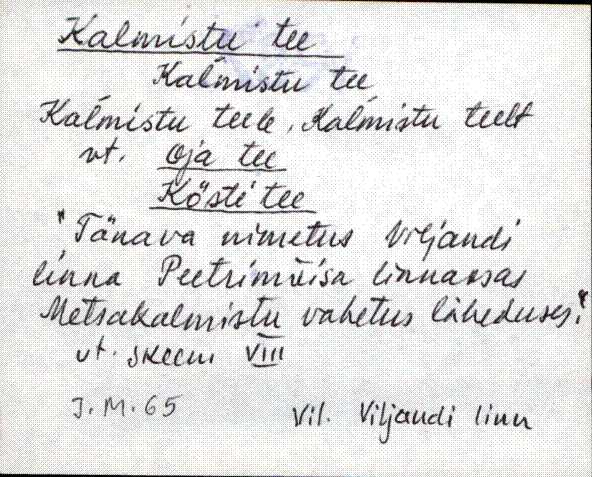 Kalmistu tee
Kalmistu tee
Kalmistu teele, Kalmistu teelt
vt. Oja tee
Kösti tee
"Tänava nimetus Viljandi
linna Peetrimõisa linnaosas
Metsakalmistu vahetus läheduses."
vt. skeem VIII
J.M.65
Vil. Viljandi linn